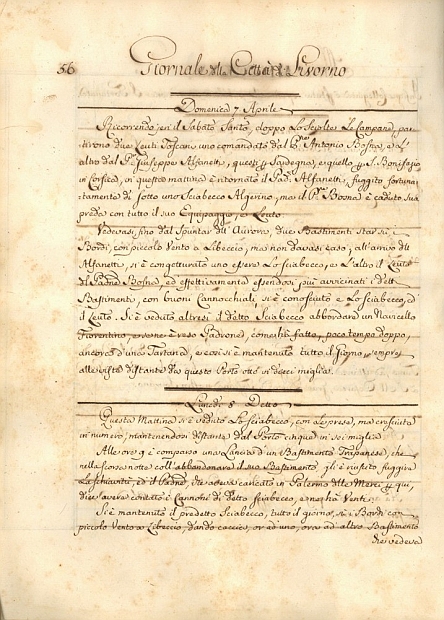 56 Giornale della Città di Livorno
Domenica 7 Aprile
Ricorrendo jeri il Sabato Santo, doppo Lo Scioltesi Le Campane, par-
tirono due Leuti Toscani uno comandato dal P.ne Antonio Bosna, e L'
altro dal P.n Giuseppe Alfanetti, questi p Sardegna, e quello p S. Bonifazio
in Corsica, in questa mattina è ritornato il Pad.n Alfanetti, fuggito fortuna-
tamente di sotto uno Sciabecco Algerino, ma il P.ne Bosna è caduto sua
preda con tutto il suo Equipaggio, e Leuto.
Vedevasi, fino dal spuntar dell' Aurora, due Bastimenti star si i
Bordi, con piccolo Vento a Libeccio, ma non davasi caso, all' arrivo dell'
Alfanetti, si è congetturato uno essere Lo Sciabecco, e L'altro il Leuto
del Padne Bosna, ed effettivamente essendosi più avvicinati i detti
Bastimenti, con buoni Cannocchiali, si è conosciuto e Lo Sciabecco, ed
il Leuto. Si è veduto altresì il detto Sciabecco abbordare un Navicello
Fiorentino, e se ne è reso Padrone, come ha fatto, poco tempo doppo,
ancora d'una Tartana, e così si è mantenuto tutto il Giorno sempre
alla vista distante da questo Porto otto in dieci miglia.
Lunedì 8 Detto
Questa Mattina si è veduto Lo Sciabecco, con Le prese, ma cresciuta
in numero, mantenendosi distante dal Porto cinque in sei miglia.
Alle ore 9 è comparso una Lancia d'un Bastimento Trapanese, che
nella scorsa notte coll' abbandonare il suo Bastimento, gli è riuscito fuggire
La Schiavitù, ed il Padne, che aveva caricato in Palermo delle Merci p qui,
dice avere contato i Cannoni di detto Sciabecco, e ne ha Venti
Si è mantenuto il predetto Sciabecco, tutto il giorno, si i Bordi con
piccolo Vento a Libeccio, dando caccia, or ad uno, ora ad altro Bastimento
che vedeva